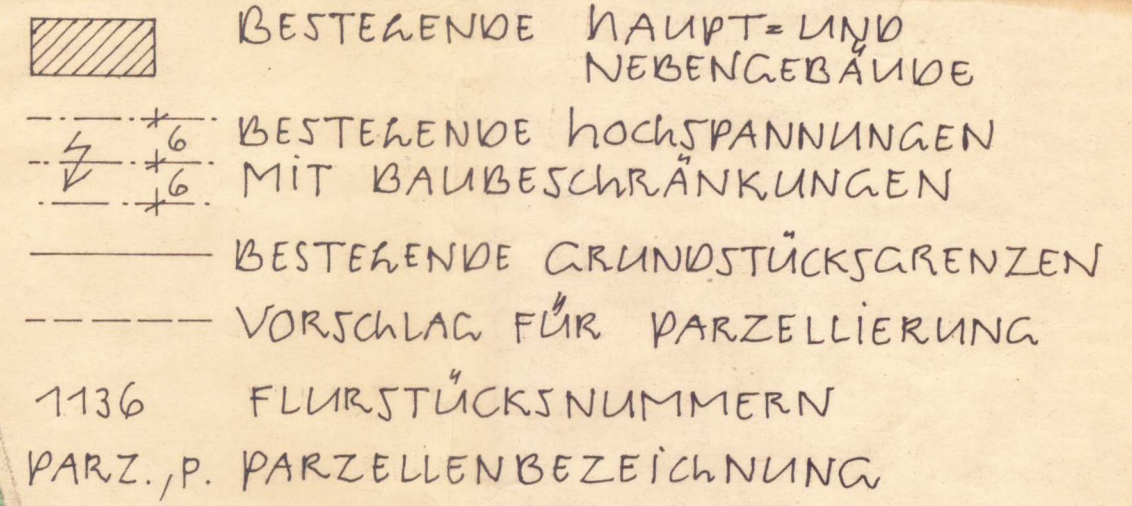 BESTEhENDE hAUPT= UND
NEBENGEBÄUDE
6 BESTEhENDE hOChSPANNUNGEN
6 MiT BAUBESChRÄNKUNGEN
BESTEhENDE GRUNDSTÜCKSGRENZEN
VORSChLAG FÜR PARZELLiERUNG
1136 FLURSTÜCKSNUMMERN
PARZ., P. PARZELLENBEZEiChNUNG